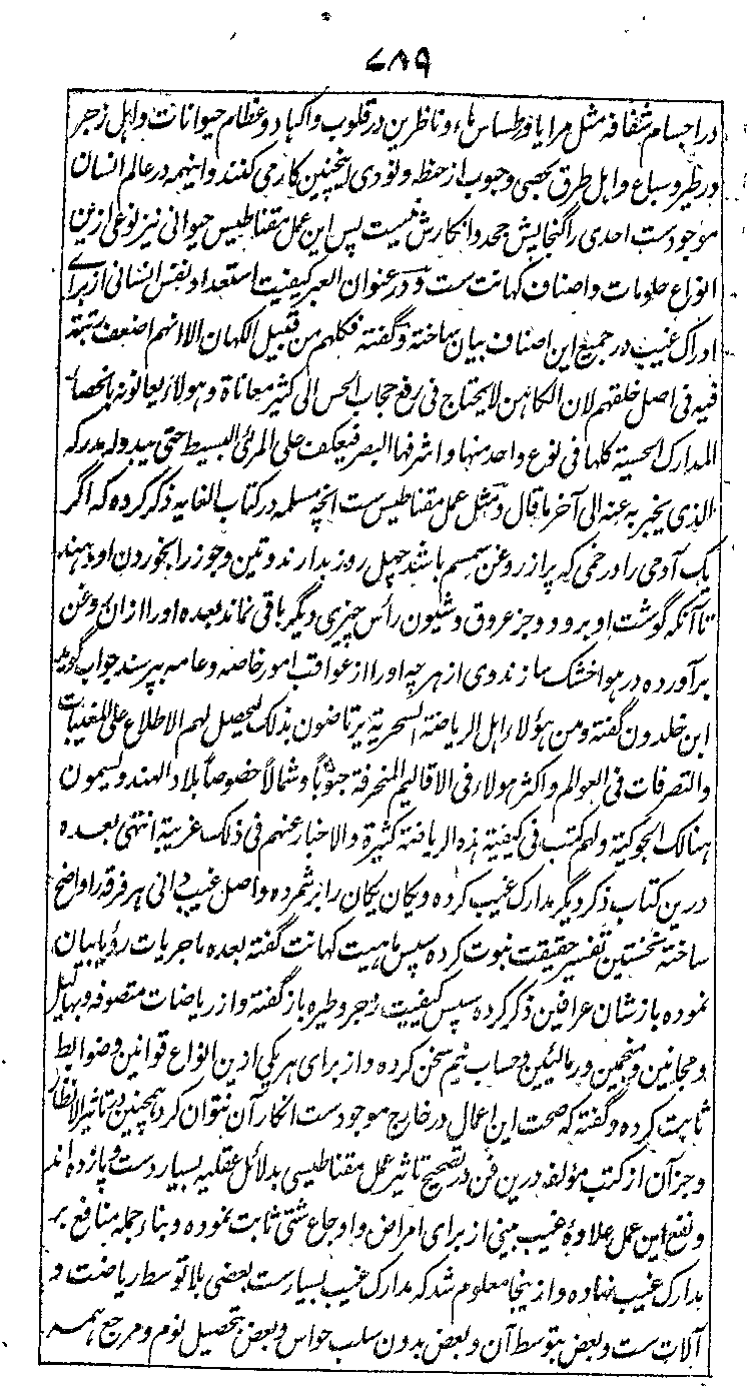 ۷۸۹
در اجسام شفافه مثل مرایا و طساس ماء و ناظرین در قلوب و اکباد و عظام حیوانات و اہل زجر
در طیر و سباع و اہل طرق بحصی و حبوب از حنطہ و نوی اینچنین کار می کنند و اینہمہ در عالم انسان
موجودست احدی را گنجایش جحد و انکارش نیست پس این عمل مقناطیس حیوانی نیز نوعی ازین
انواع علومات و اصناف کہانت ست و در عنوان العبر کیفیت استعداد نفس انسانی از برای
ادراک غیب در جمیع این اصناف بیان ساختہ و گفتہ فکلهم من قبیل الکہان الا انہم اضعف رتبة
فیہ فی اصل خلقتہم لان الکاہن لا یحتاج فی رفع حجاب الحس الی کثیر معاناة و ہولاء یعانونہ بانحصار
المدارک الحسیة کلها فی نوع واحد منها و اشرفها البصر فیعکف علی المرئی البسیط حتی یبدو لہ مدرکہ
الذی یخبر بہ عنہ الی آخر ما قال و مثل عمل مقناطیس ست انچہ مسلمہ در کتاب الغایہ ذکر کردہ کہ اگر
یک آدمی را در خمی کہ پر از روغن سمسم باشد چہل روز بدارند و تین و جوز را بخوردن او دہند
تا آنکہ گوشت او برود و جز عروق و شیون رأس چیزی دیگر باقی نماند بعدہ او را ازان روغن
برآوردہ در ہوا خشک سازند وی از ہر چہ او را از عواقب امور خاصہ و عامہ بپرسند جواب گوید
ابن خلدون گفتہ و من ہؤلاء اہل الریاضة السحریة یرتاضون بذلک لیحصل لہم الاطلاع علی المغیبات
و التصرفات فی العوالم و اکثر ہولاء فی الاقالیم المنحرفة جنوباً و شمالاً خصوصاً بلاد الهند و یسمون
ہنالک الجوکیة و لہم کتب فی کیفیة ہذہ الریاضة کثیرة و الاخبار عنہم فی ذلک غریبة انتہی بعدہ
درین کتاب ذکر دیگر مدارک غیب کردہ و یکان یکان را برشمردہ و اصل غیب دانی ہر فرقہ را واضح
ساختہ نخستین تفسیر حقیقت نبوت کردہ سپس ماہیت کہانت گفتہ بعدہ ماجریات رؤیا بیان
نمودہ باز شان عرافین ذکر کردہ سپس کیفیت زجر و طیرہ باز گفتہ و از ریاضات متصوفہ و بہالیل
و مجانین و منجمین و رمالین و حساب نیم سخن کردہ و از برای ہر یکی ازین انواع قوانین و ضوابط
ثابت کردہ و گفتہ کہ صحت این اعمال در خارج موجودست انکار آن نتوان کرد ہمچنین در تاثیر الانظار
و جز آن از کتب مؤلفہ درین فن در تصحیح تاثیر عمل مقناطیسی بدلائل عقلیہ بسیار دست و پا زدہ اند
و نفع این عمل علاوۂ غیب بینی از برای امراض و اوجاع شتی ثابت نمودہ و بناء جملہ منافع بر
مدارک غیب نہادہ و ازینجا معلوم شد کہ مدارک غیب بسیارست بعضی بلا توسط ریاضت و
آلات ست و بعض بتوسط آن و بعض بدون سلب حواس و بعض بتحصیل نوم و مرجع ہمہ